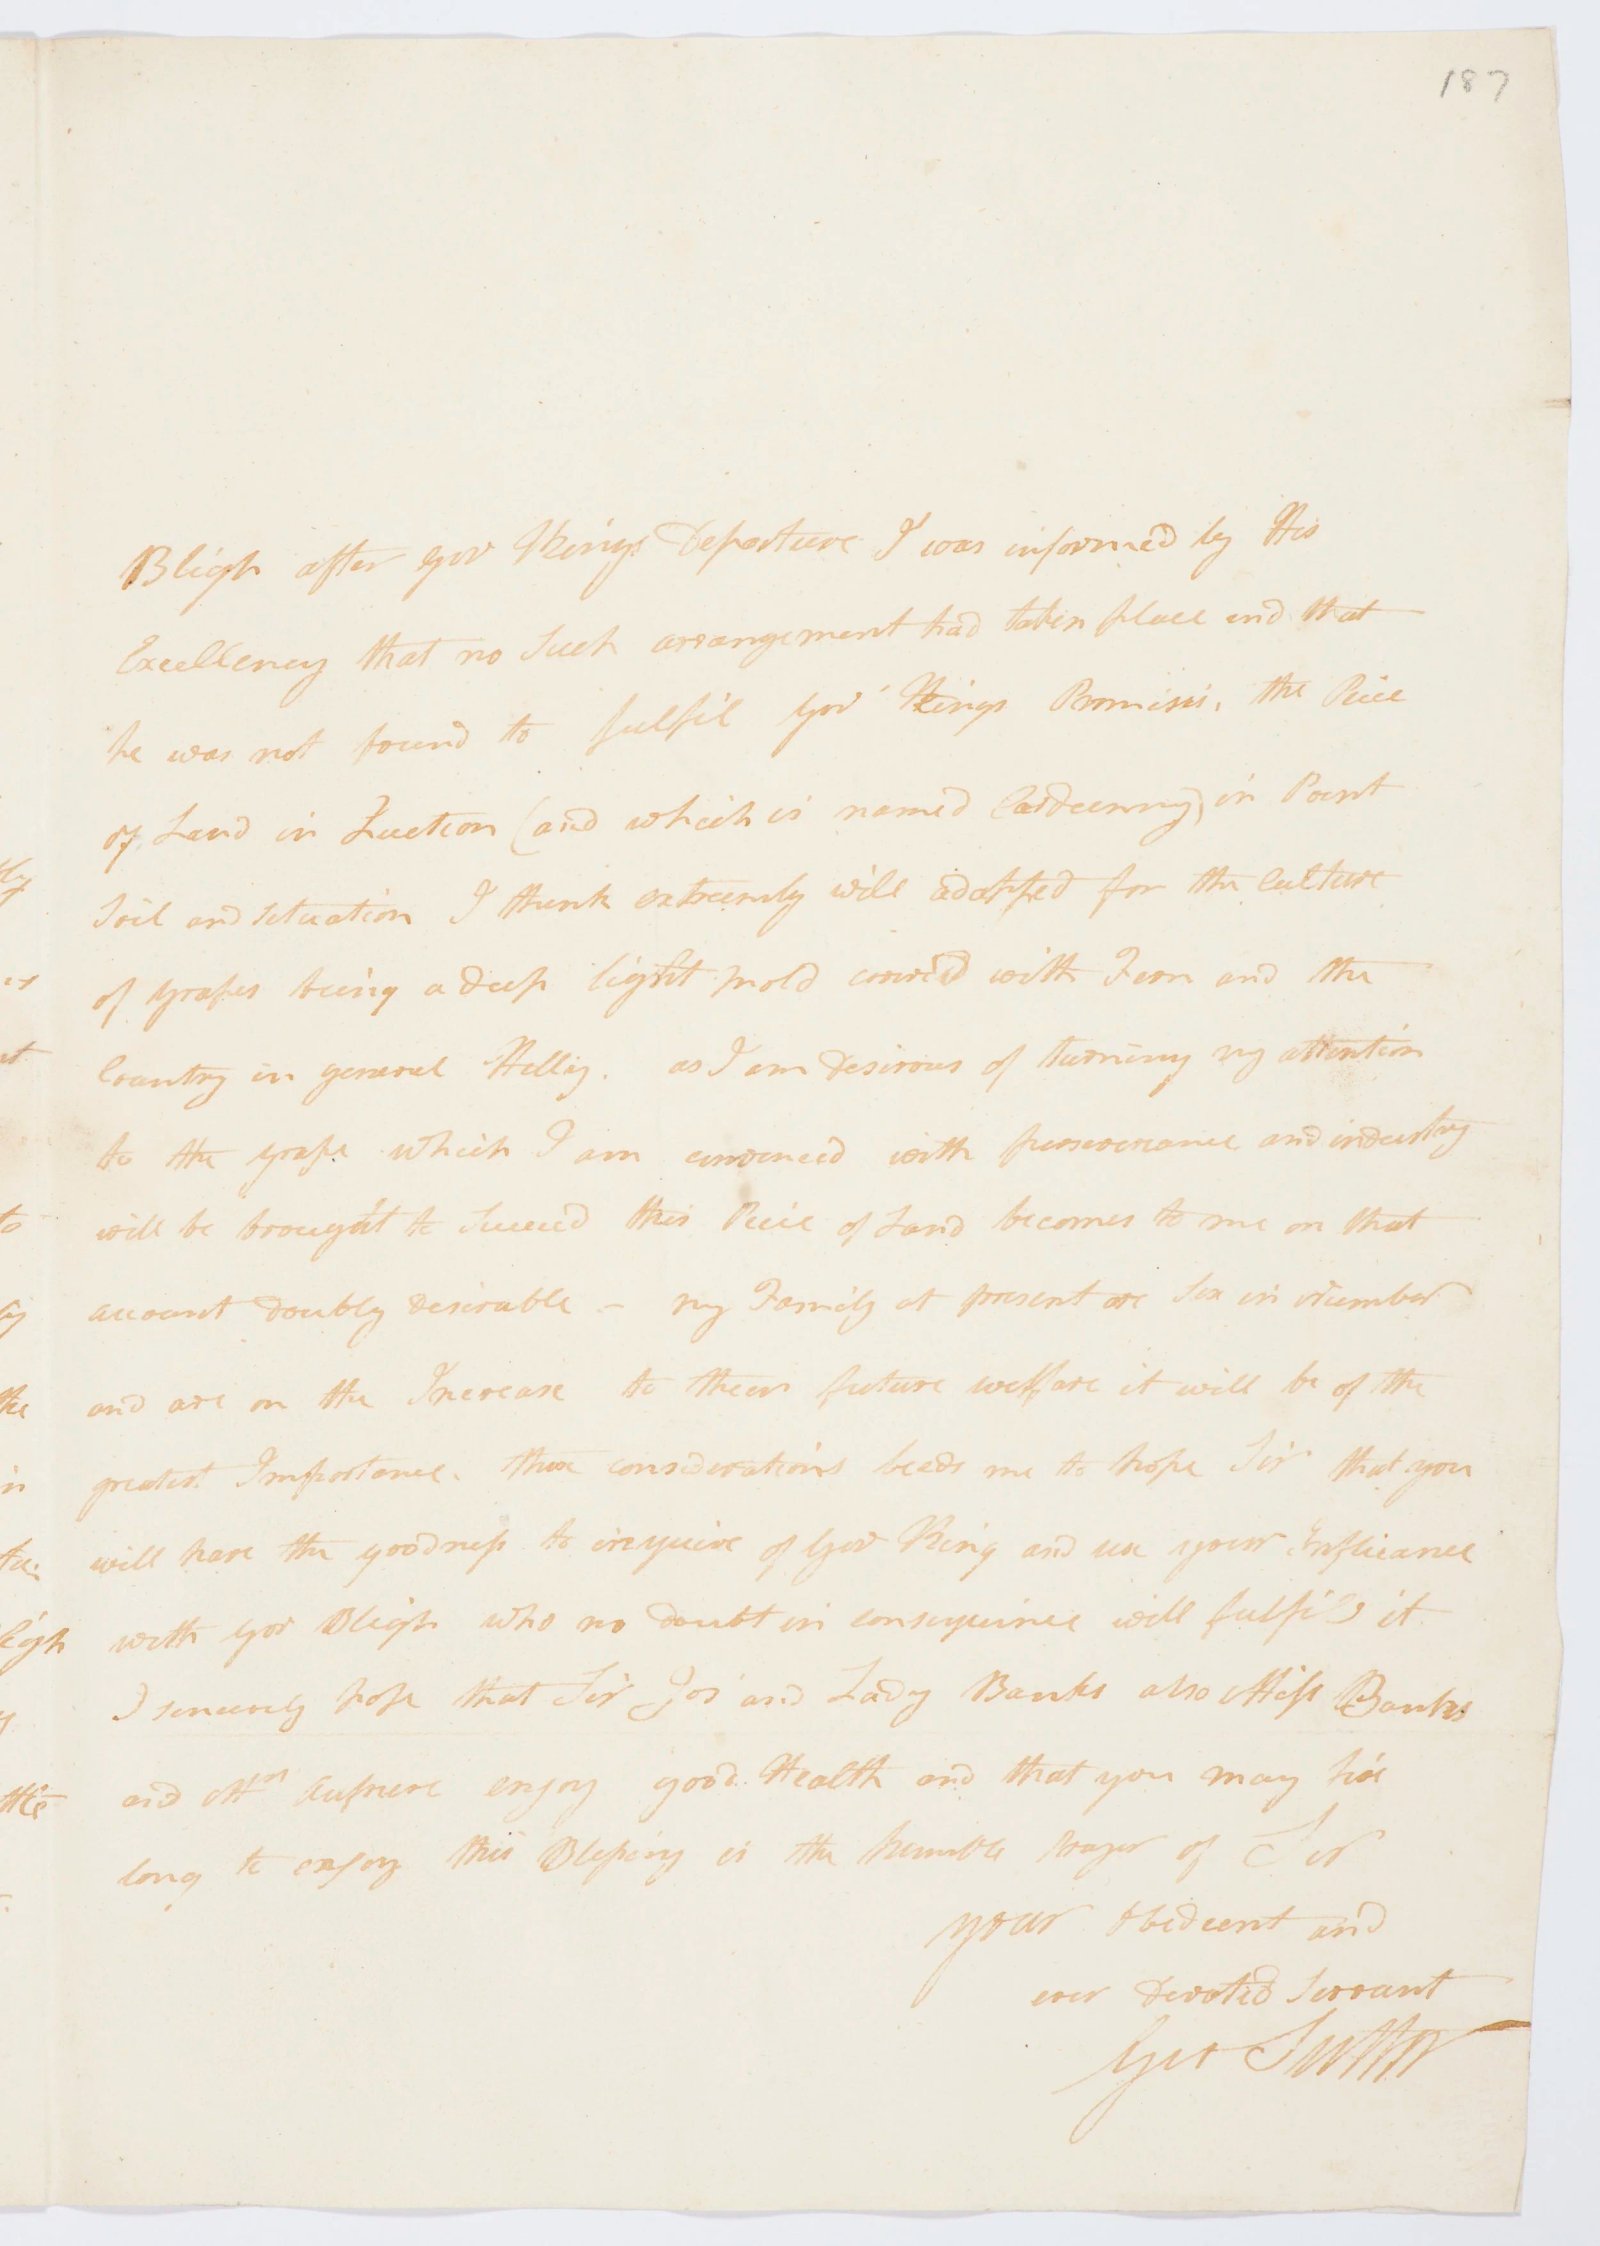 187
Bligh after Gov Kings Departure I was informed by His
Excellency that no Such arrangement had taken place and that
he was not bound to fulfil Gov Kings Promises, the Piece
of Land in Question (and which is named Cardeenny) in Point
Soil and Situation I think extreemly will adapted for the Culture
of Grapes being a deep light mold covered with Fern and the
Country in general Hilly. as I am desirous of turning my attention
to the grape which I am convinced with perseverance and industry
will be brought to Succeed this Peice of Land becomes to me on that
account doubly desirable – my Family at present are Six in number
and are on the Increase to them future welfare it will be of the
greatest Importance. these considerations leads me to hope Sir that you
will have the goodness to inquire of Gov King and use your Influeance
with Gov Bligh who no doubt in consequince will fulfill it
I sincerely hope that Sir Jos and Lady Banks also Miss Banks
and Mrs enjoy good Health and that you may live
long to enjoy this Blessing is the humble prayer of Sir
your Obedient and
ever Devoted Servant
Geo Suttor